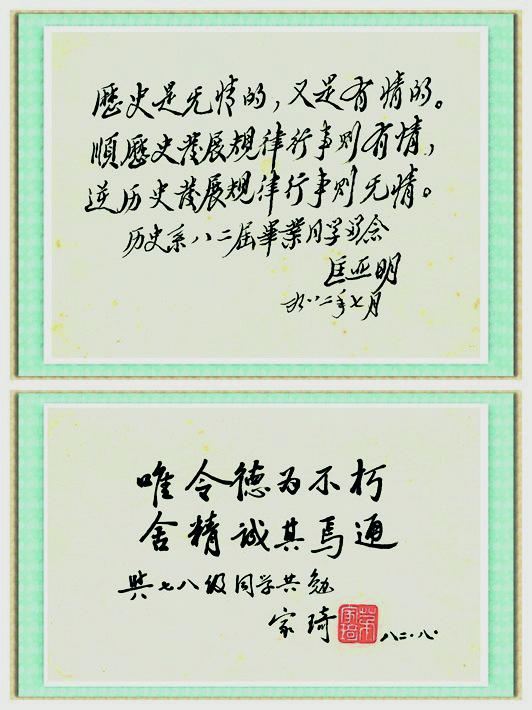 歷史是无情的，又是有情的。
順歷史發展規律行事则有情，
逆历史發展規律行事则无情。
历史系八二届畢業同学留念
匡亚明
九八二年七月
唯令德为不朽
舍精诚其焉通
與七八级同学共勉
家琦
八二·八·